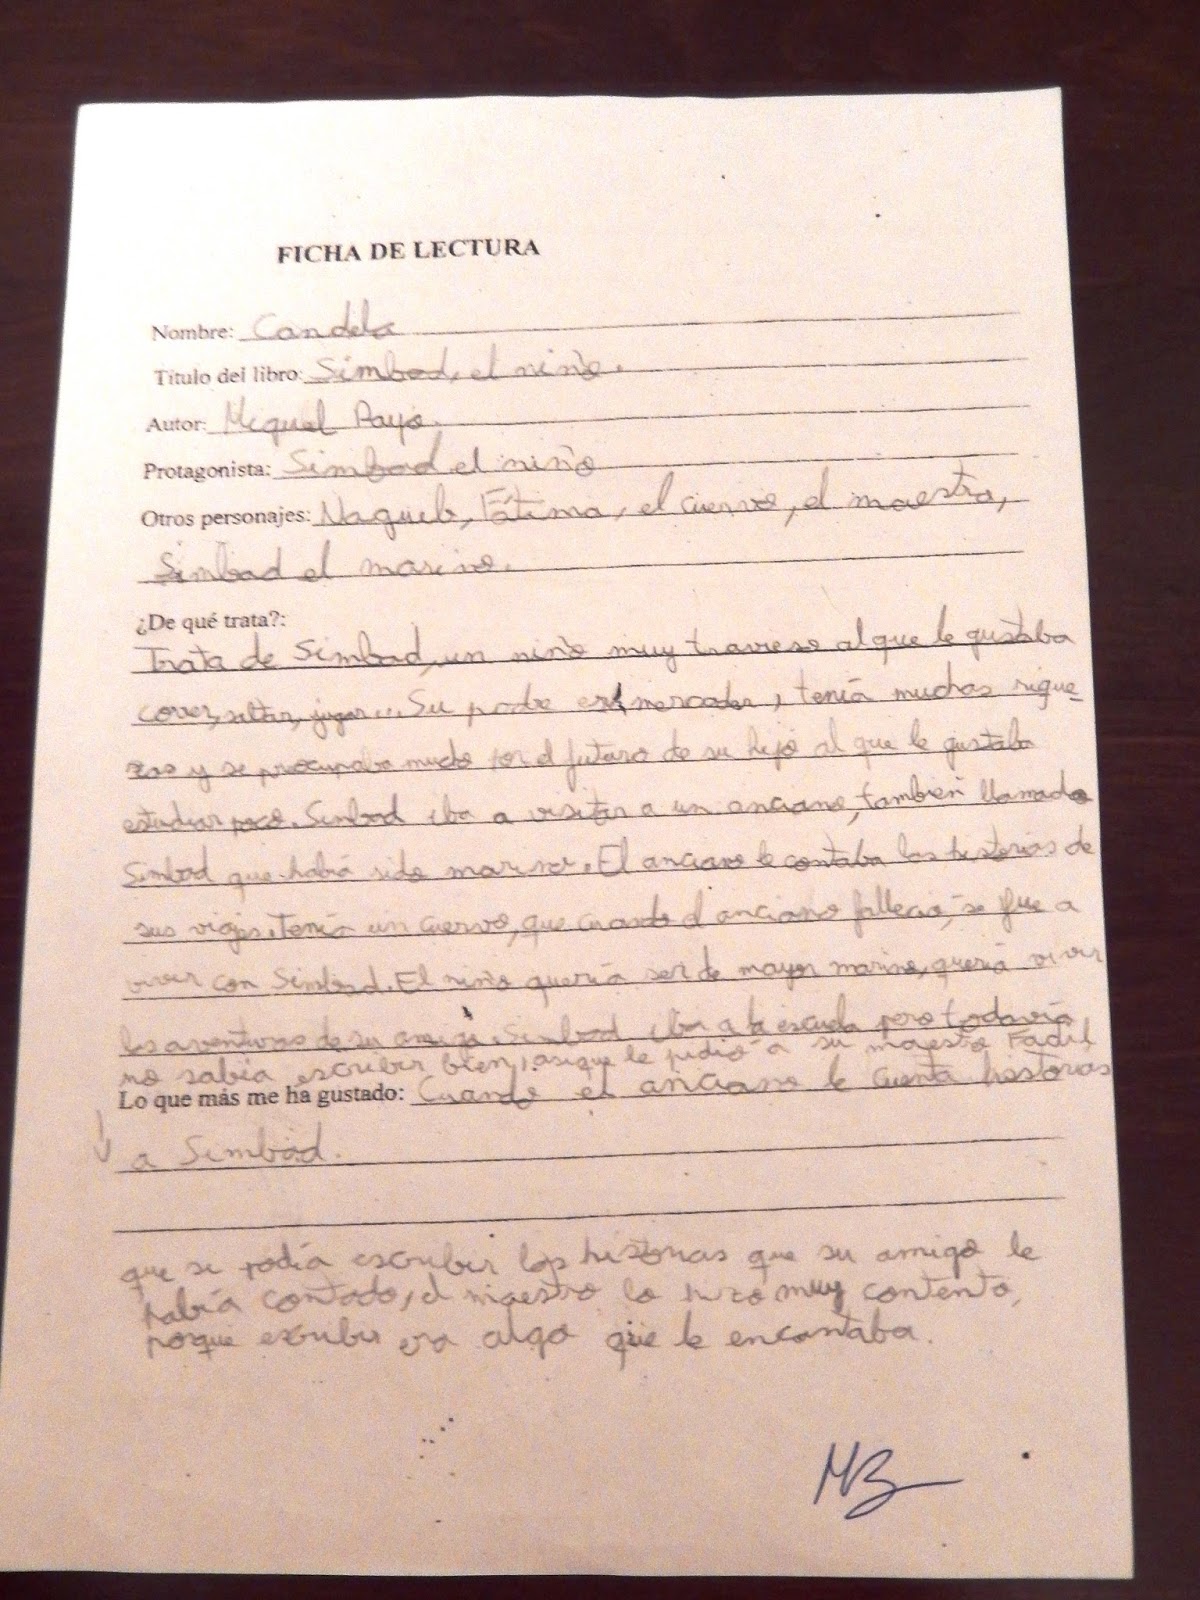 FICHA DE LECTURA
Nombre: Candela
Título del libro: Simbad, el niño.
Autor: Miguel Payo.
Protagonista: Simbad el niño
Otros personajes: Naguib, Fátima, el cuervo, el maestro,
Simbad el marino.
¿De qué trata?:
Trata de Simbad, un niño muy travieso al que le gustaba
correr, saltar, jugar... Su padre era mercader, tenía muchas rique-
zas y se preocupaba mucho por el futuro de su hijo al que le gustaba
estudiar poco. Simbad iba a visitar a un anciano, también llamado
Simbad que había sido marino. El anciano le contaba las historias de
sus viajes. Tenía un cuervo, que cuando el anciano falleció, se fue a
vivir con Simbad. El niño quería ser de mayor marino, quería vivir
las aventuras de su amigo. Simbad iba a la escuela pero todavía
no sabía escribir bien, asique le pidió a su maestro Fadil,
Lo que más me ha gustado: Cuando el anciano le cuenta historias
a Simbad.
que si podía escribir las historias que su amigo le
había contado, el maestro lo hizo muy contento,
porque escribir era algo que le encantaba.
MB